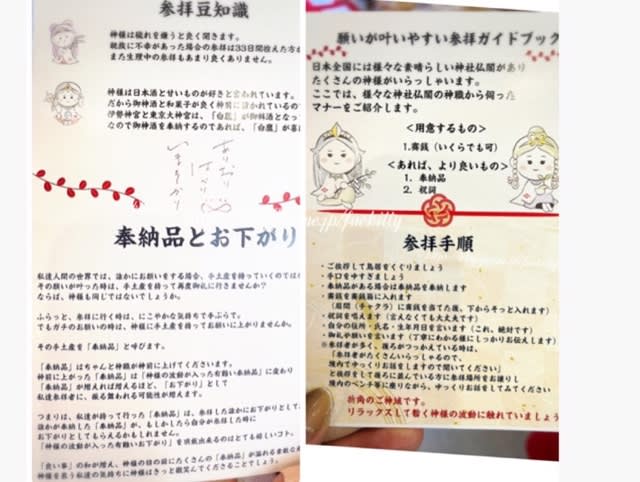 参拝豆知識
神様は穢れを嫌うと良く聞きます。
親族に不幸があった場合の参拝は33日間控えた方が
また生理中の参拝もあまり良くありません。
神様は日本酒と甘いものが好きと言われています。
だから御神酒と和菓子が良く神前に置かれているの
伊勢神宮と東京大神宮は、「白鷹」が御料酒となっ
なので御神酒を奉納するのであれば、「白鷹」が喜
ありおり
はべり
いまそかり
奉納品とお下がり
私達人間の世界では、誰かにお願いをする場合、手土産を持っていくのでは
その願いが叶った時は、手土産を持って再度御礼に行きませんか?
ならば、神様も同じではないでしょうか。
ふらっと、参拝に行く時は、にこやかな気持ちで手ぶらで。
でもガチのお願いの時は、神様に手土産を持ってお願いに上がりませんか。
その手土産を「奉納品」と呼びます。
「奉納品」はちゃんと神職が神前に上げてくださいます。
神前に上がった「奉納品」は「神様の波動が入った有難い奉納品」に変わり
「奉納品」が増えれば増えるほど、「お下がり」として
私達参拝者に、振る舞われる可能性が増えます。
つまりは、私達が持って行った「奉納品」は、参拝した誰かにお下がりとして、
誰かが奉納した「奉納品」が、もしかしたら自分が参拝した時に
お下がりとしてもらえるかもしれません。
「神様の波動が入った有難いお下がり」を頂戴出来るのはとても嬉しいコト。
「良い事」の和が増え、神様の目の前にたくさんの「奉納品」が溢れる素敵な
神様を敬う私達の気持ちに神様はきっと微笑んでくださることでしょう。
願いが叶いやすい参拝ガイドブック
日本全国には様々な素晴らしい神社仏閣があり
たくさんの神様がいらっしゃいます。
ここでは、様々な神社仏閣の神職から伺った
マナーをご紹介します。
<用意するもの>
1.賽銭(いくらでも可)
<あれば、より良いもの>
1. 奉納品
2. 祝詞
参拝手順
・ご挨拶して鳥居をくぐりましょう
・手口をゆすぎましょう
・奉納品がある場合は奉納品を奉納します
・賽銭を賽銭箱に入れます
(眉間(チャクラ)に賽銭を当てた後、下からそっと入れます)
・祝詞を唱えます(言えなくても大丈夫です)
・自分の住所・氏名・生年月日を言います(これ、絶対です)
・御礼や願いを言います(丁寧にわかる様にしっかりお伝えします)
※参拝者が多く、後ろがつっかえている時は、
「参拝者がたくさんいらっしゃるので、
境内でゆっくりお話をしますので聞いてください」
と挨拶をして後ろに並んでいる方に参拝場所をお譲りし
境内のベンチ等に座りながら、ゆっくりお話をしてみてください
折角のご神域です。
リラックスして暫く神様の波動に触れていましょう